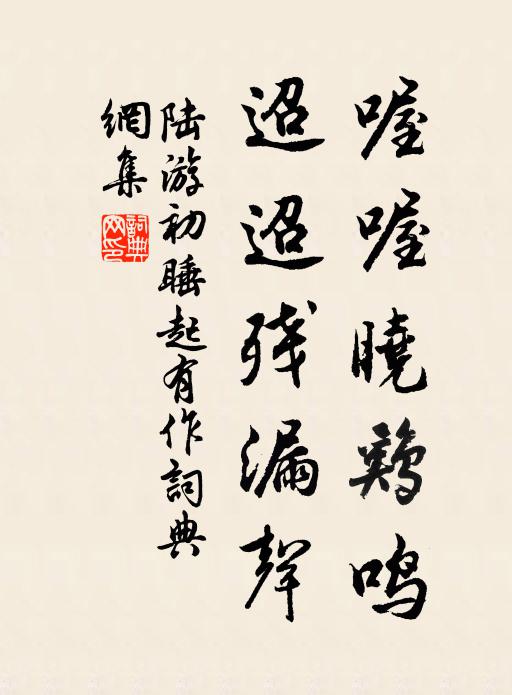 喔喔曉鷄鳴
迢迢残漏聲
陸游初睡起有作詞典
網集
詞典網印